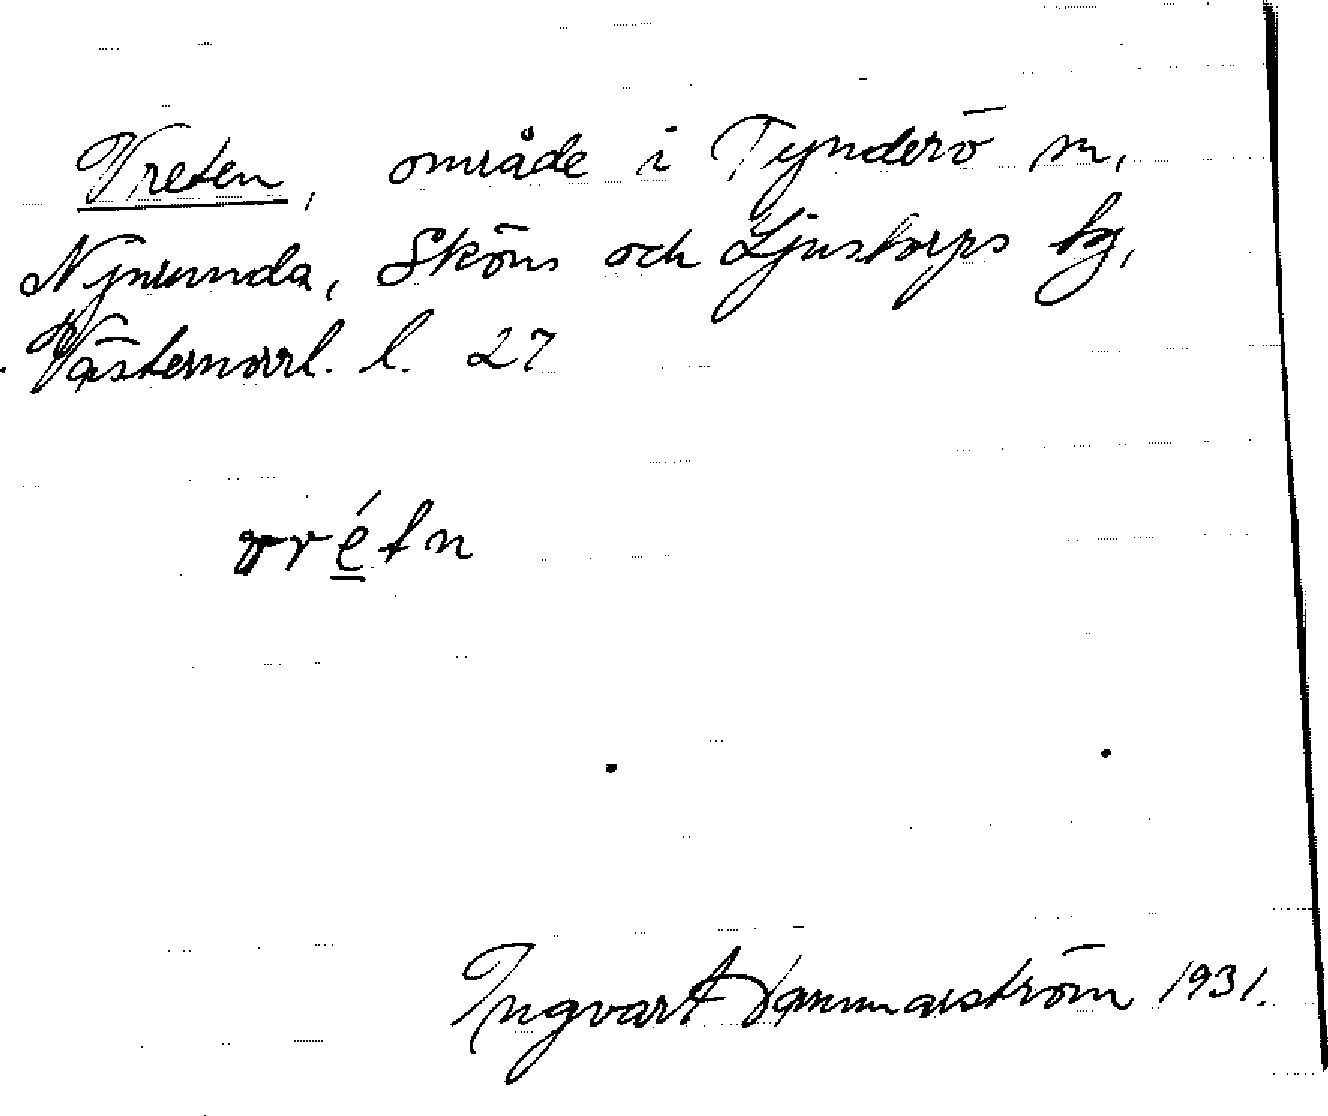 Vreten, område i Tynderö m,
Njurunda, Sköns och Ljustorps tg,
Västernorrl. l. 27
vrétn
Ingvart Hammarström 1931.